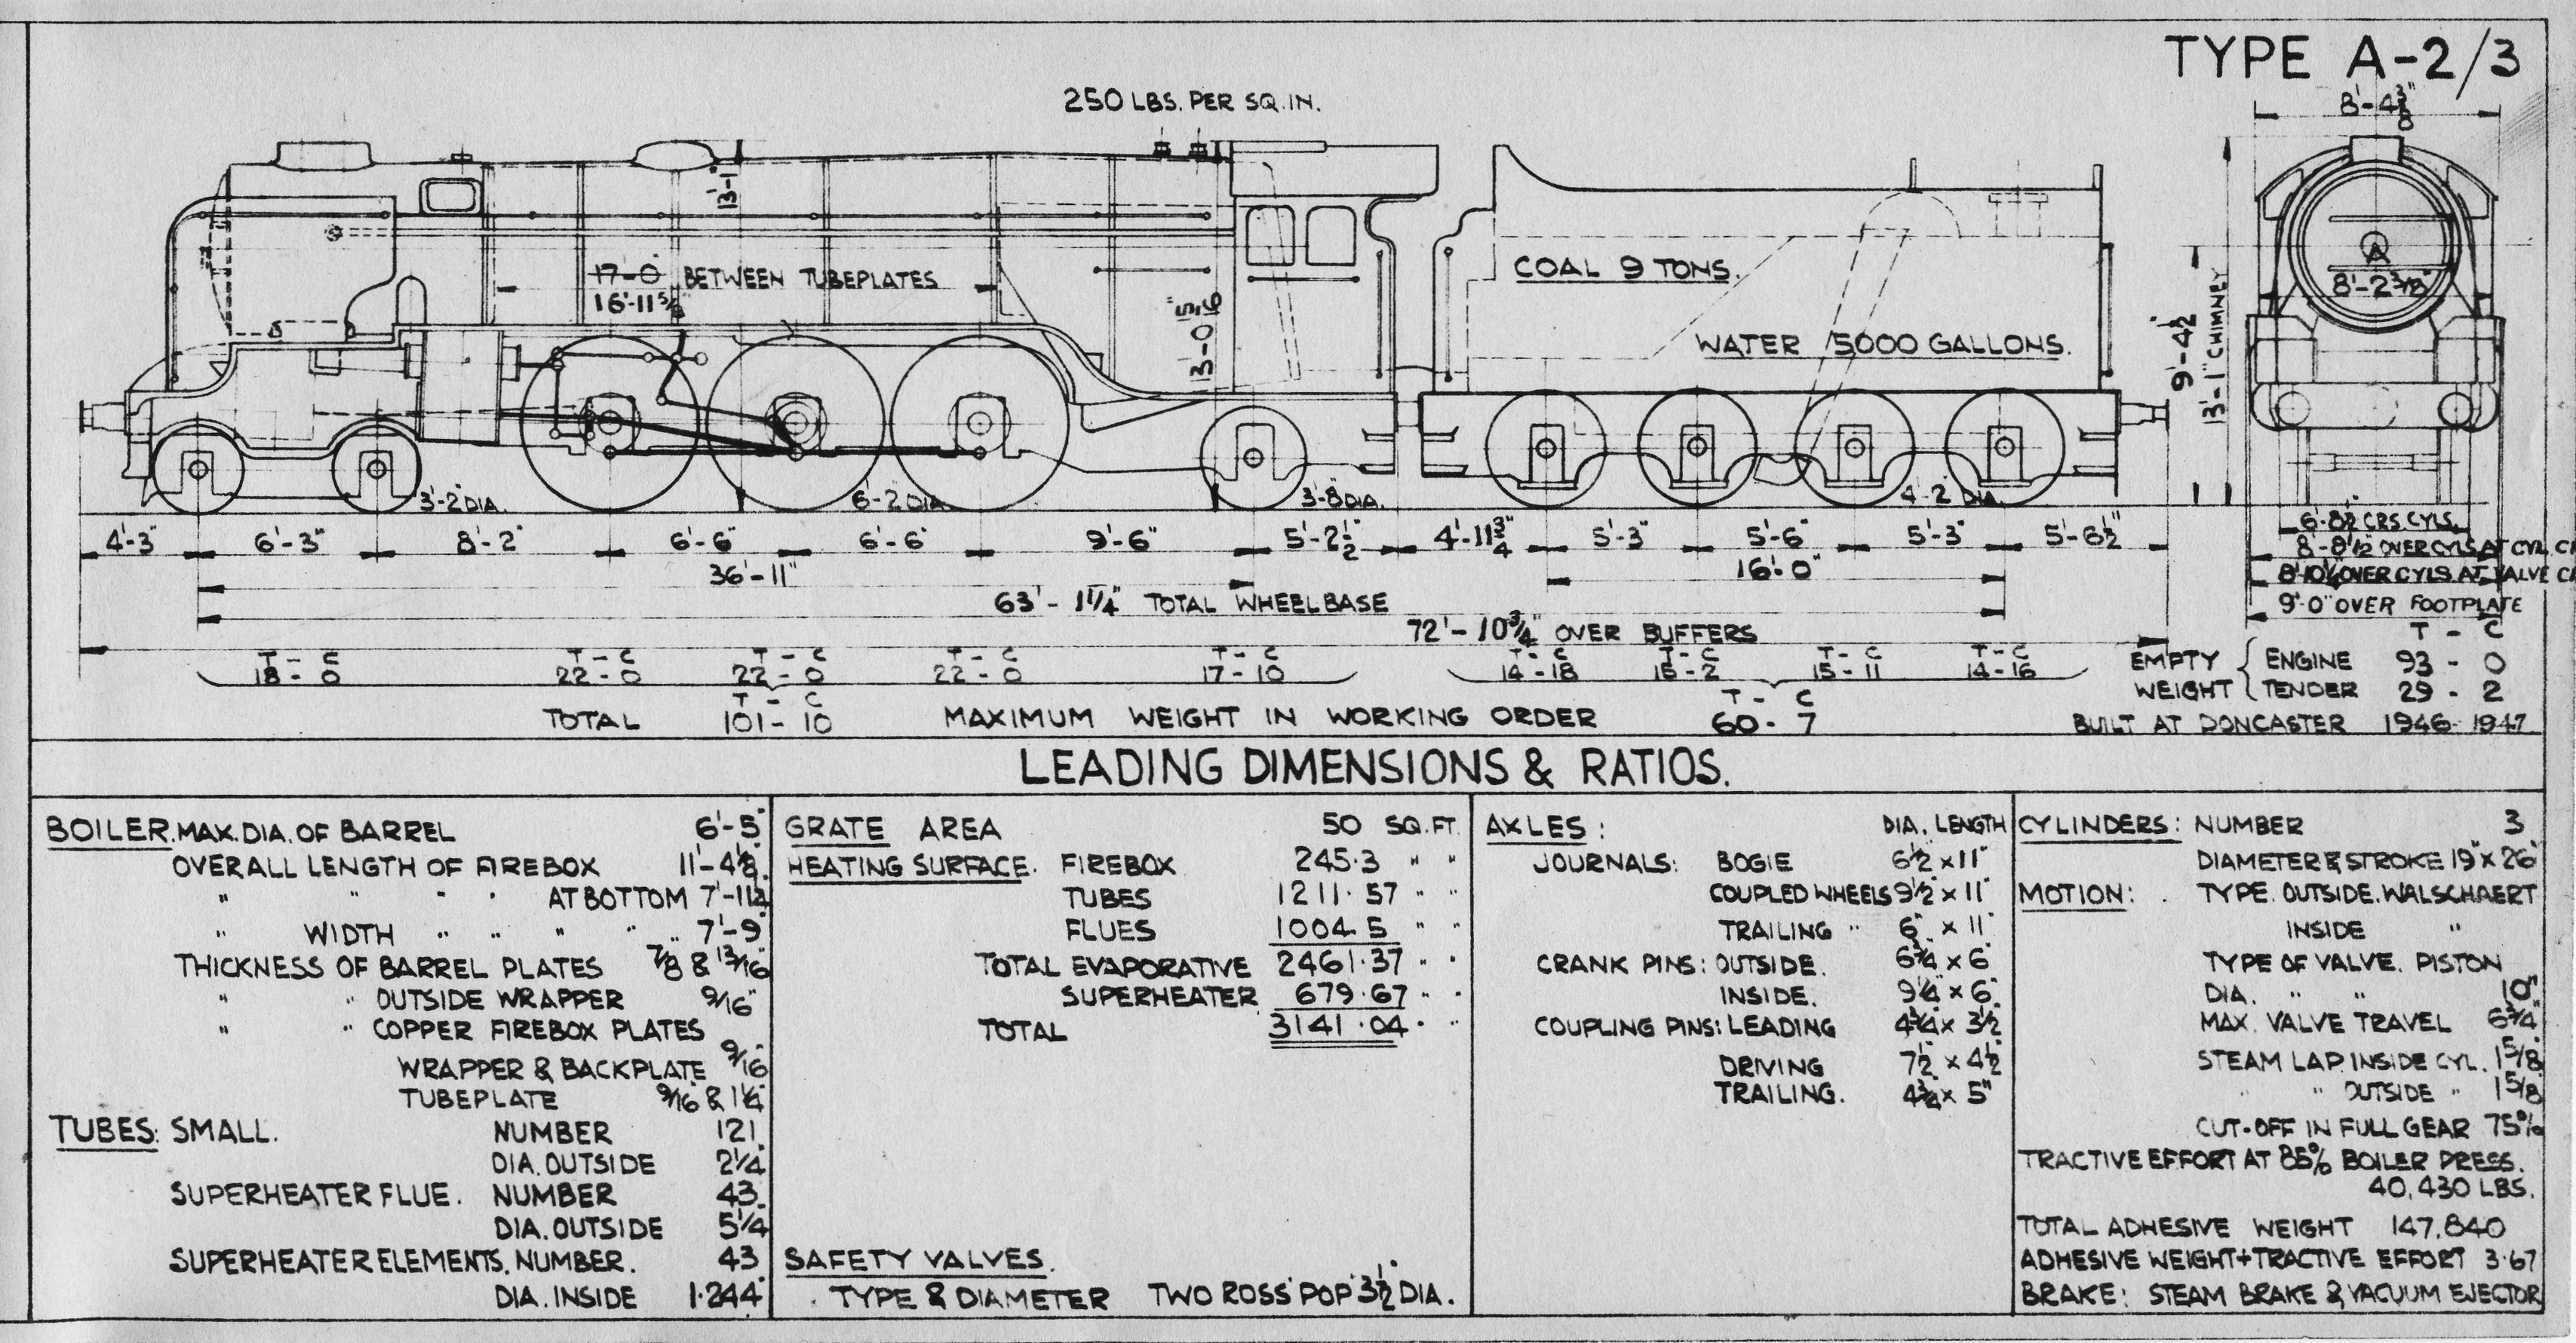 TYPE A-2/3
250 LBS. PER SQ. IN.
8'-4 3/8"
13'-1"
17'-0" BETWEEN TUBEPLATES
16'-11 5/8"
13'-0 5/16"
COAL 9 TONS.
WATER 5000 GALLONS.
8'-2 3/8"
9'-4 1/2"
13'-1" CHIMNEY
3'-2" DIA.
6'-2" DIA.
3'-8" DIA.
4'-2" DIA.
4'-3" 6'-3" 8'-2" 6'-6" 6'-6" 9'-6" 5'-2 1/2" 4'-11 3/4" 5'-3" 5'-6" 5'-3" 5'-6 1/2"
36'-11" 16'-0"
63'-1 1/4" TOTAL WHEELBASE
72'-10 3/4" OVER BUFFERS
6'-8 1/2" CRS. CYLS.
8'-8 1/2" OVER CYLS AT CYL.
OVER CYLS AT VALVE
9'-0" OVER FOOTPLATE
T - C T - C T - C T - C T - C T - C T - C T - C T - C
18 - 0 22 - 0 22 - 0 22 - 0 17 - 10 14 - 18 15 - 2 15 - 11 14 - 16
T - C T - C
TOTAL 101 - 10 MAXIMUM WEIGHT IN WORKING ORDER 60 - 7
T - C
EMPTY WEIGHT { ENGINE 93 - 0
TENDER 29 - 2
BUILT AT DONCASTER 1946-1947
LEADING DIMENSIONS & RATIOS.
BOILER. MAX. DIA. OF BARREL 6'-5"
OVERALL LENGTH OF FIREBOX 11'-4 1/8"
" " " " AT BOTTOM 7'-11 1/2"
" WIDTH " " " " " 7'-9"
THICKNESS OF BARREL PLATES 7/8 & 13/16"
" " OUTSIDE WRAPPER 9/16"
" " COPPER FIREBOX PLATES
WRAPPER & BACKPLATE 9/16"
TUBEPLATE 9/16" & 1 1/4"
TUBES: SMALL. NUMBER 121
DIA. OUTSIDE 2 1/4"
SUPERHEATER FLUE. NUMBER 43
DIA. OUTSIDE 5 1/4
SUPERHEATER ELEMENTS. NUMBER. 43
DIA. INSIDE 1.244"
GRATE AREA 50 SQ. FT.
HEATING SURFACE. FIREBOX 245.3 " "
TUBES 1211.57 " "
FLUES 1004.5 " "
TOTAL EVAPORATIVE 2461.37 " "
SUPERHEATER 679.67 " "
TOTAL 3141.04 " "
SAFETY VALVES.
TYPE & DIAMETER TWO ROSS 'POP' 3 1/2" DIA.
AXLES: DIA. LENGTH
JOURNALS: BOGIE 6 1/2" x 11"
COUPLED WHEELS 9 1/2" x 11"
TRAILING " 6" x 11"
CRANK PINS: OUTSIDE. 6 3/4" x 6"
INSIDE. 9 1/4" x 6"
COUPLING PINS: LEADING 4 3/4" x 3 1/2"
DRIVING 7 1/2" x 4 1/2"
TRAILING. 4 3/4" x 5"
CYLINDERS: NUMBER 3
DIAMETER & STROKE 19" x 26"
MOTION: TYPE. OUTSIDE. WALSCHAERT
INSIDE "
TYPE OF VALVE. PISTON
DIA. " " 10"
MAX. VALVE TRAVEL 6 3/4"
STEAM LAP. INSIDE CYL. 1 5/8
" OUTSIDE " 1 5/8
CUT-OFF IN FULL GEAR 75%
TRACTIVE EFFORT AT 85% BOILER PRESS.
40,430 LBS.
TOTAL ADHESIVE WEIGHT 147,840
ADHESIVE WEIGHT ÷ TRACTIVE EFFORT 3.67
BRAKE: STEAM BRAKE & VACUUM EJECTOR